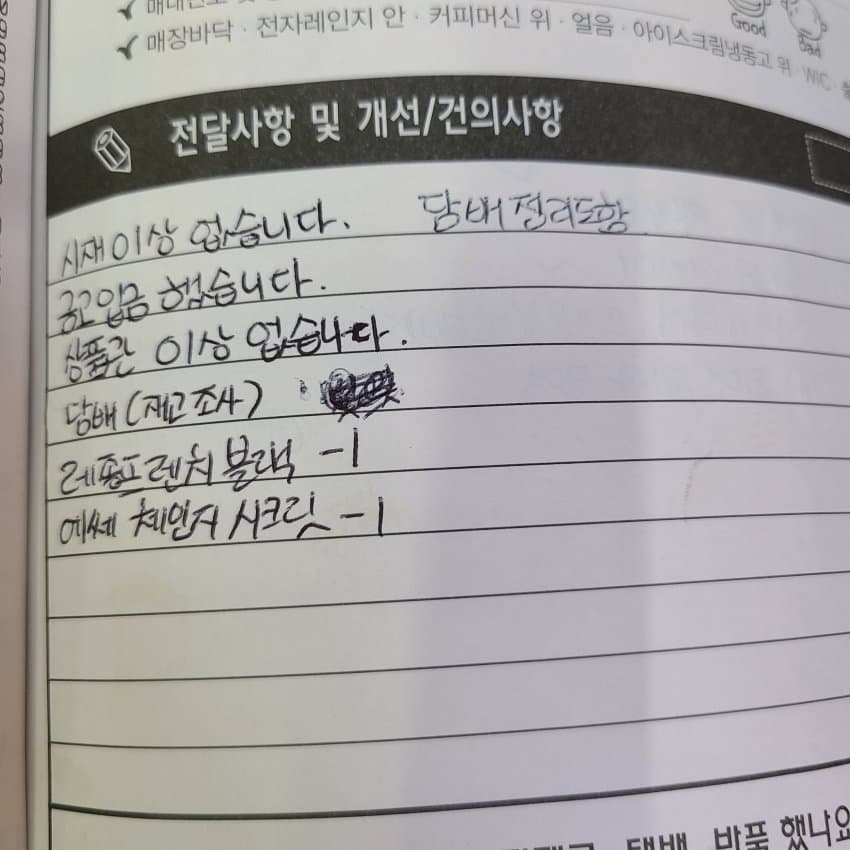 Good
Bad
✓ 매장바닥 · 전자레인지 안 · 커피머신 위 · 얼음 · 아이스크림냉동고 위 WIC
전달사항 및 개선/건의사항
시재 이상 없습니다. 담배정리도함
금고입금 했습니다.
상품권 이상 없습니다.
담배(재고조사)
레종프렌치블랙 -1
에쎄 체인지 시크릿 -1
택배 반품 했나요